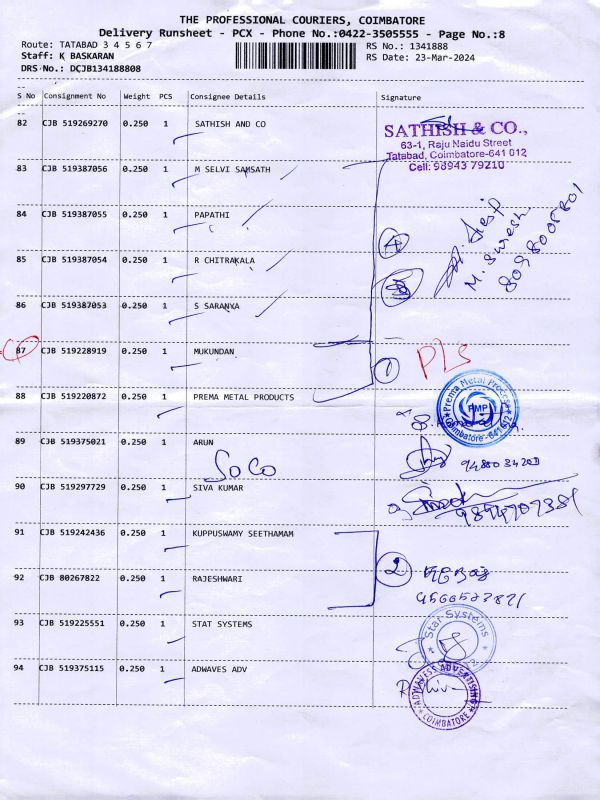 THE PROFESSIONAL COURIERS, COIMBATORE
Delivery Runsheet - PCX - Phone No.:0422-3505555 - Page No.:8
Route: TATABAD 3 4 5 6 7
RS No.: 1341888
Staff: K BASKARAN
RS Date: 23-Mar-2024
DRS No.: DCJB134188808
S No Consignment No Weight PCS Consignee Details Signature
82 CJB 519269270 0.250 1 SATHISH AND CO
SATHISH & CO.,
63-1, Raju Naidu Street
Tatabad, Coimbatore-641 012
Cell: 98943 79210
83 CJB 519387056 0.250 1 M SELVI SAMSATH
84 CJB 519387055 0.250 1 PAPATHI
4
M. Suresh
8098005801
85 CJB 519387054 0.250 1 R CHITRAKALA
86 CJB 519387053 0.250 1 S SARANYA
87 CJB 519228919 0.250 1 MUKUNDAN
1
PLS
88 CJB 519220872 0.250 1 PREMA METAL PRODUCTS
Prema Metal Process
PMP
Coimbatore-641 012
89 CJB 519375021 0.250 1 ARUN
SoCo
90 CJB 519297729 0.250 1 SIVA KUMAR
9894707381
91 CJB 519242436 0.250 1 KUPPUSWAMY SEETHAMAM
2
92 CJB 80267822 0.250 1 RAJESHWARI
93 CJB 519225551 0.250 1 STAT SYSTEMS
Star Systems
94 CJB 519375115 0.250 1 ADWAVES ADV
ADWAVES ADVERTISING
COIMBATORE